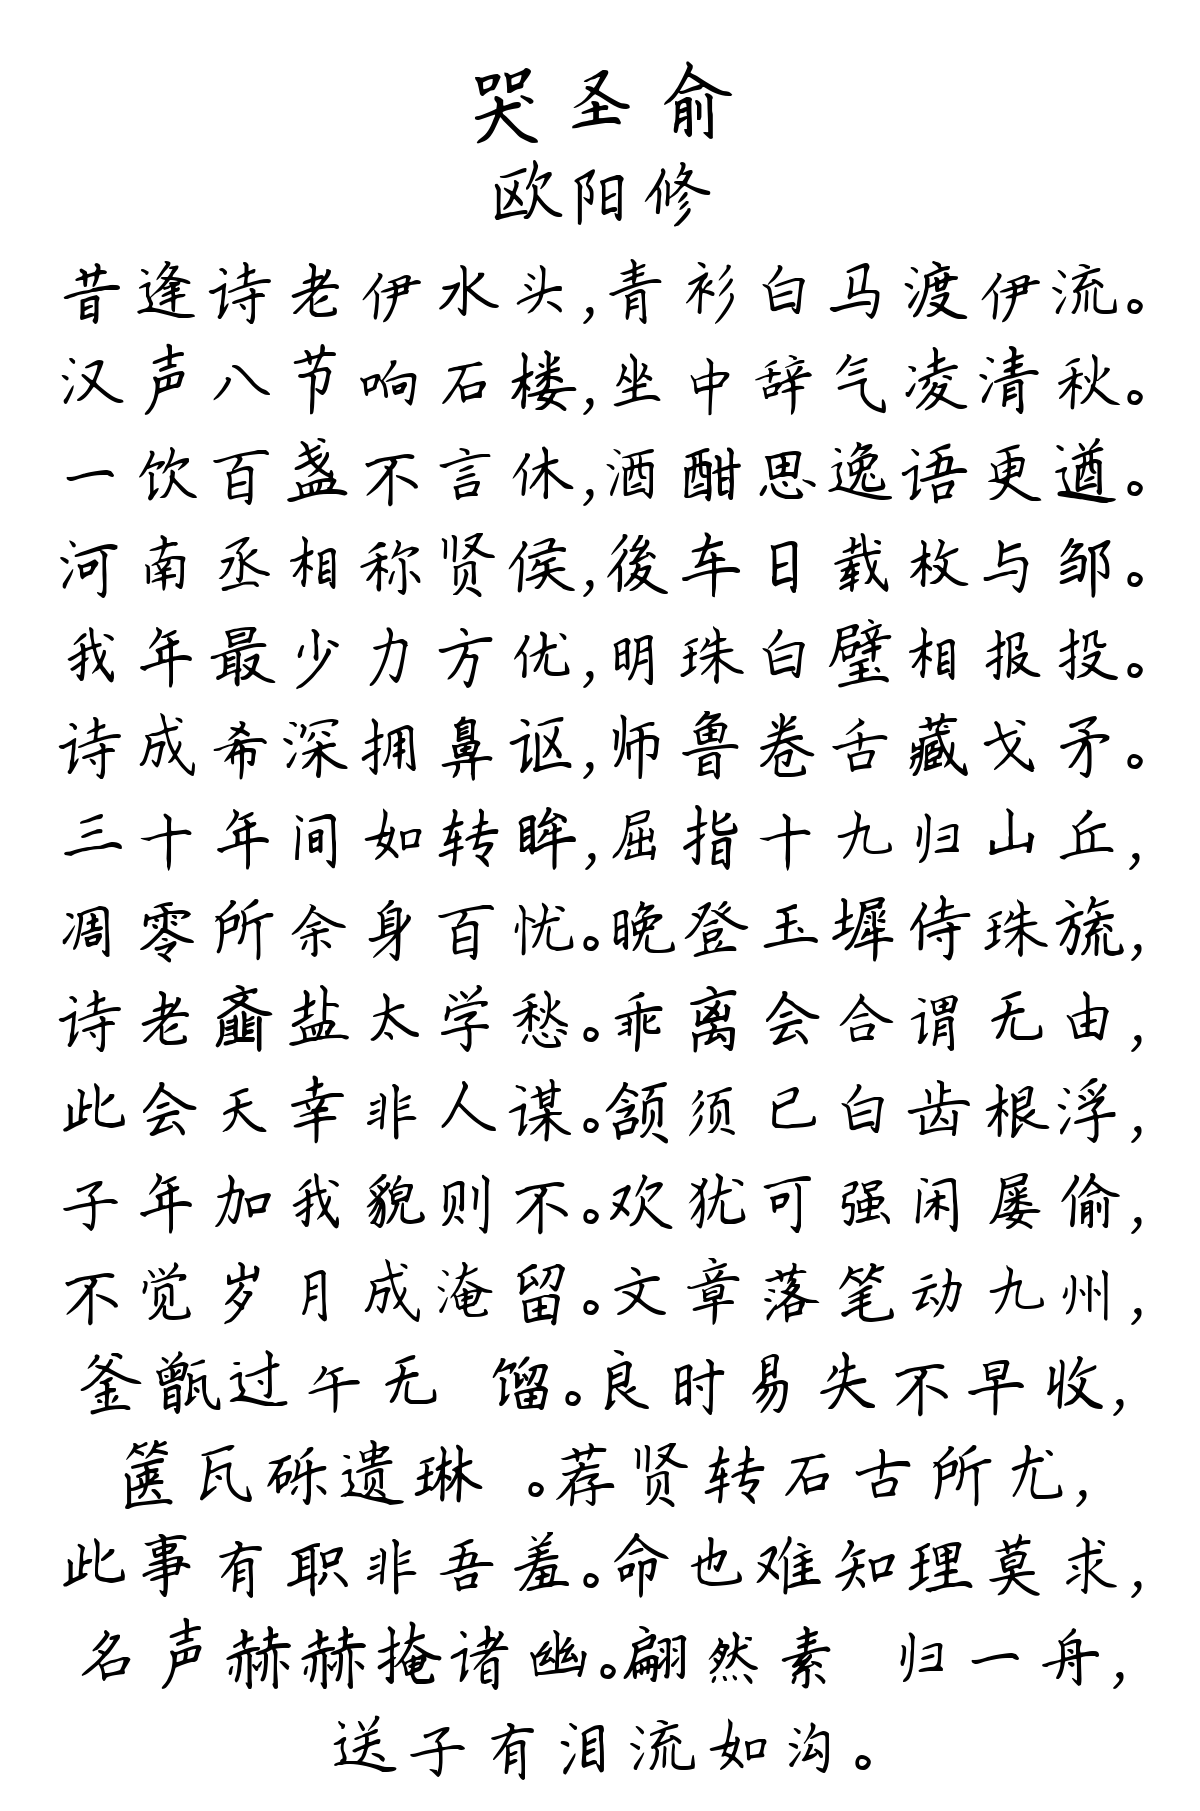 哭圣俞
欧阳修
昔逢诗老伊水头,青衫白马渡伊流。
汉声八节响石楼,坐中辞气凌清秋。
一饮百盏不言休,酒酣思逸语更遒。
河南丞相称贤侯,後车日载枚与邹。
我年最少力方优,明珠白璧相报投。
诗成希深拥鼻讴,师鲁卷舌藏戈矛。
三十年间如转眸,屈指十九归山丘,
凋零所余身百忧。晚登玉墀侍珠旒,
诗老齑盐太学愁。乖离会合谓无由,
此会天幸非人谋。颔须已白齿根浮,
子年加我貌则不。欢犹可强闲屡偷,
不觉岁月成淹留。文章落笔动九州,
釜甑过午无 馏。良时易失不早收,
箧瓦砾遗琳 。荐贤转石古所尤,
此事有职非吾羞。命也难知理莫求,
名声赫赫掩诸幽。翩然素 归一舟,
送子有泪流如沟。